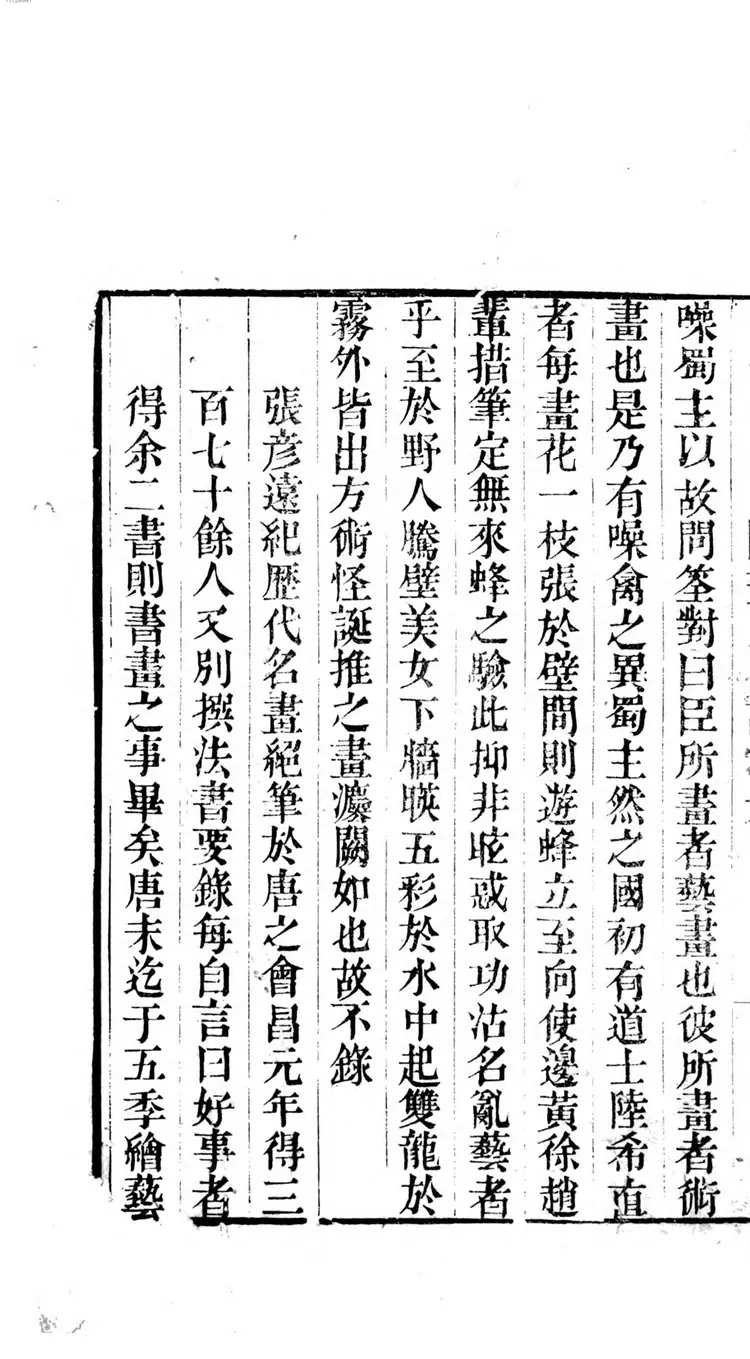 噪蜀主以故問筌對曰臣所畫者藝畫也彼所畫者術
畫也是乃有噪禽之異蜀主然之國初有道士陸希真
者每畫花一枝張於壁間則遊蜂立至向使邊黃徐趙
輩措筆定無來蜂之驗此抑非眩惑取功沽名亂藝者
乎至於野人騰壁美女下牆映五彩於水中起雙龍於
霧外皆出方術怪誕推之畫灋闕如也故不錄
張彦遠紀歷代名畫絕筆於唐之會昌元年得三
百七十餘人又別撰法書要錄每自言曰好事者
得余二書則書畫之事畢矣唐末迄于五季繪藝